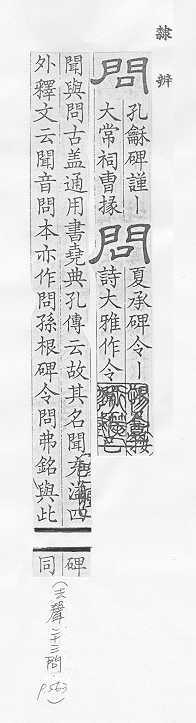 隸辨
問
孔龢碑謹｜
大常祠曹掾
問
夏承碑令｜
詩大雅作令
聞與問古盖通用書堯典孔傳云故其名聞充溢四
外釋文云聞音問本亦作問孫根碑令問弗銘與此
碑
同
(去聲二十三問 P.563)